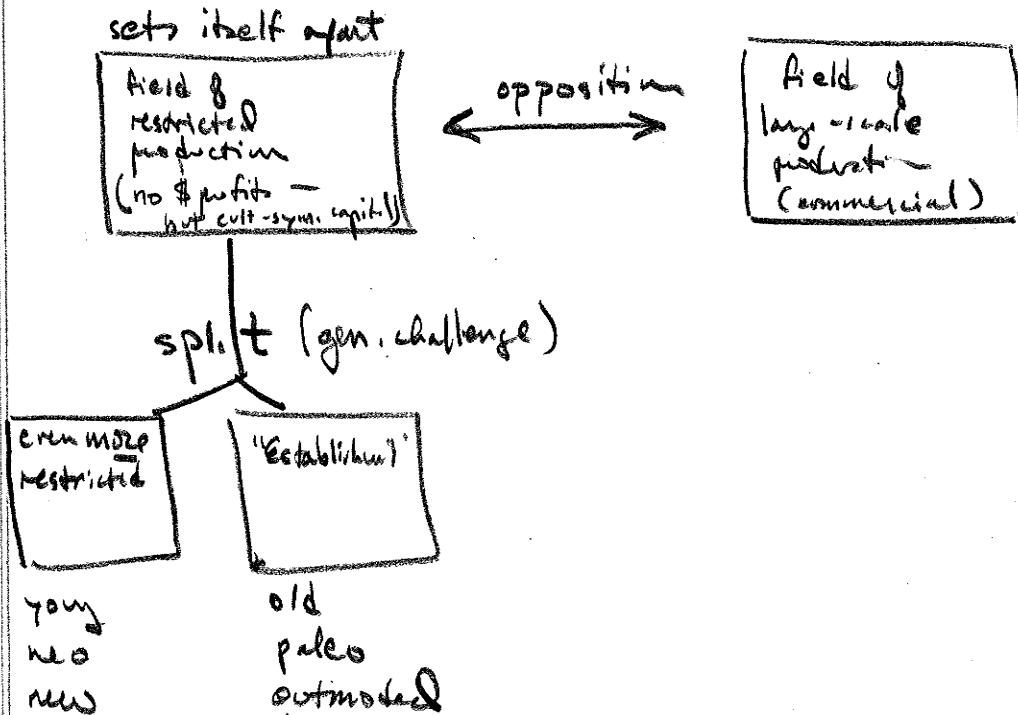 sets itself apart
field of
restricted
production
(no $ profits –
but cult-sym. capital)
opposition
field of
large-scale
production
(commercial)
split (gen. challenge)
even more
restricted
"Establishmt"
young
neo
new
old
paleo
outmoded